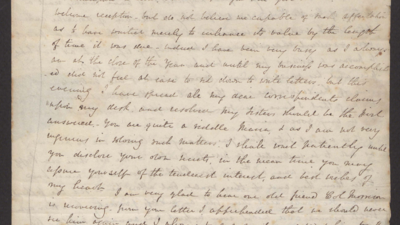 welcome reception, but do not believe me capable of such affectation
as I have wanted merely to enhance its value by the length
of time it was due, indeed I have been very busy as I always
am at the close of the Year and until my business was accomplish
ed I did not feel at ease to sit down to write letters, but this
evening I have spread all my dear correspondents claims
upon my desk and resolve my Sisters should be the first
answered. You are quite a riddle Maria, & as I am not very
ingenious in solving such matters. I shall wait patiently until
you disclose your own secrets, in the mean time you may
assure yourself of the tenderest interest, and best wishes of
my heart. I am very glad to hear our old friend Col
is recovering, from your letter I apprehended that we should never
see him again